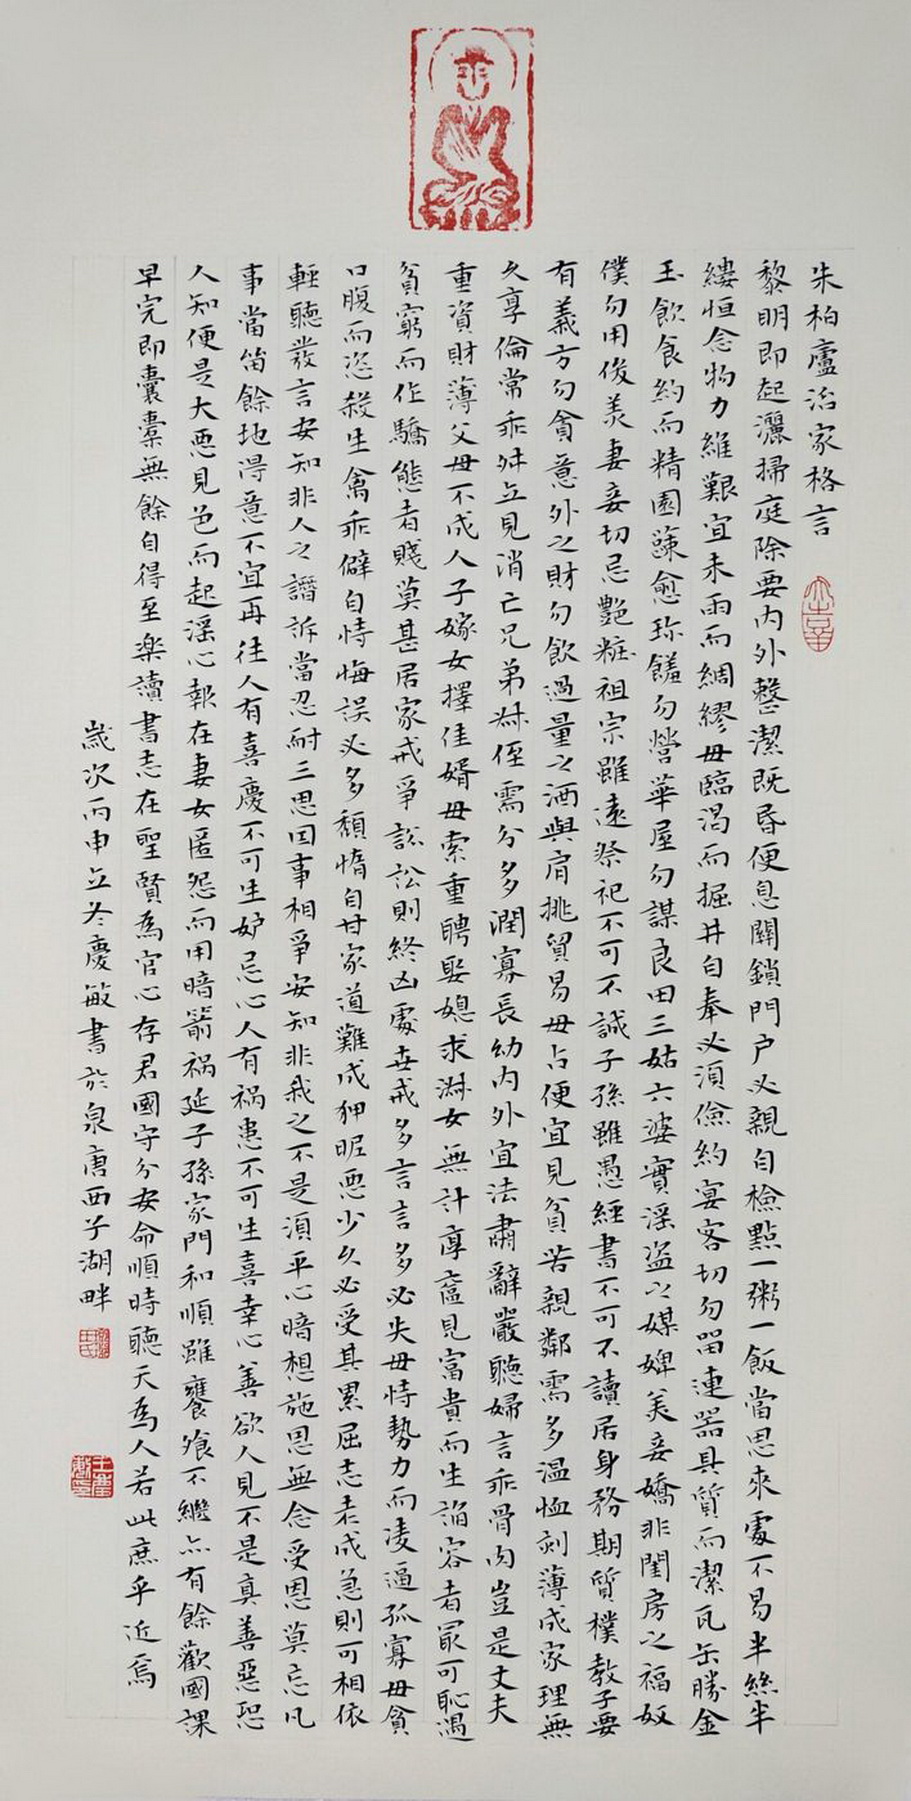 朱柏廬治家格言
黎明即起灑掃庭除要内外整潔既昏便息關鎖門户必親自檢點一粥一飯當思來處不易半絲半
縷恒念物力維艱宜未雨而綢繆毋臨渴而掘井自奉必須儉約宴客切勿留連器具質而潔瓦缶勝金
玉飲食約而精園蔬愈珍饈勿營華屋勿謀良田三姑六婆實淫盜之媒婢美妾嬌非閨房之福奴
僕勿用俊美妻妾切忌艷粧祖宗雖遠祭祀不可不誠子孫雖愚經書不可不讀居身務期質樸教子要
有義方勿貪意外之財勿飲過量之酒與肩挑貿易毋占便宜見貧苦親鄰需多温恤刻薄成家理無
久享倫常乖舛立見消亡兄弟叔侄需分多潤寡長幼内外宜法肅辭嚴聽婦言乖骨肉豈是丈夫
重資財薄父母不成人子嫁女擇佳婿毋索重聘娶媳求淑女無計厚奩見富貴而生諂容者最可恥遇
貧窮而作驕態者賤莫甚居家戒爭訟訟則終凶處世戒多言言多必失毋恃勢力而凌逼孤寡毋貪
口腹而恣殺生禽乖僻自恃悔誤必多頹惰自甘家道難成狎昵惡少久必受其累屈志老成急則可相依
輕聽發言安知非人之譖訴當忍耐三思因事相爭安知非我之不是須平心暗想施恩無念受恩莫忘凡
事當留餘地得意不宜再往人有喜慶不可生妒忌心人有禍患不可生喜幸心善欲人見不是真善惡恐
人知便是大惡見色而起淫心報在妻女匿怨而用暗箭禍延子孫家門和順雖饔飧不繼亦有餘歡國課
早完即囊橐無餘自得至樂讀書志在聖賢為官心存君國守分安命順時聽天為人若此庶乎近焉
歲次丙申立冬慶敏書於泉唐西子湖畔